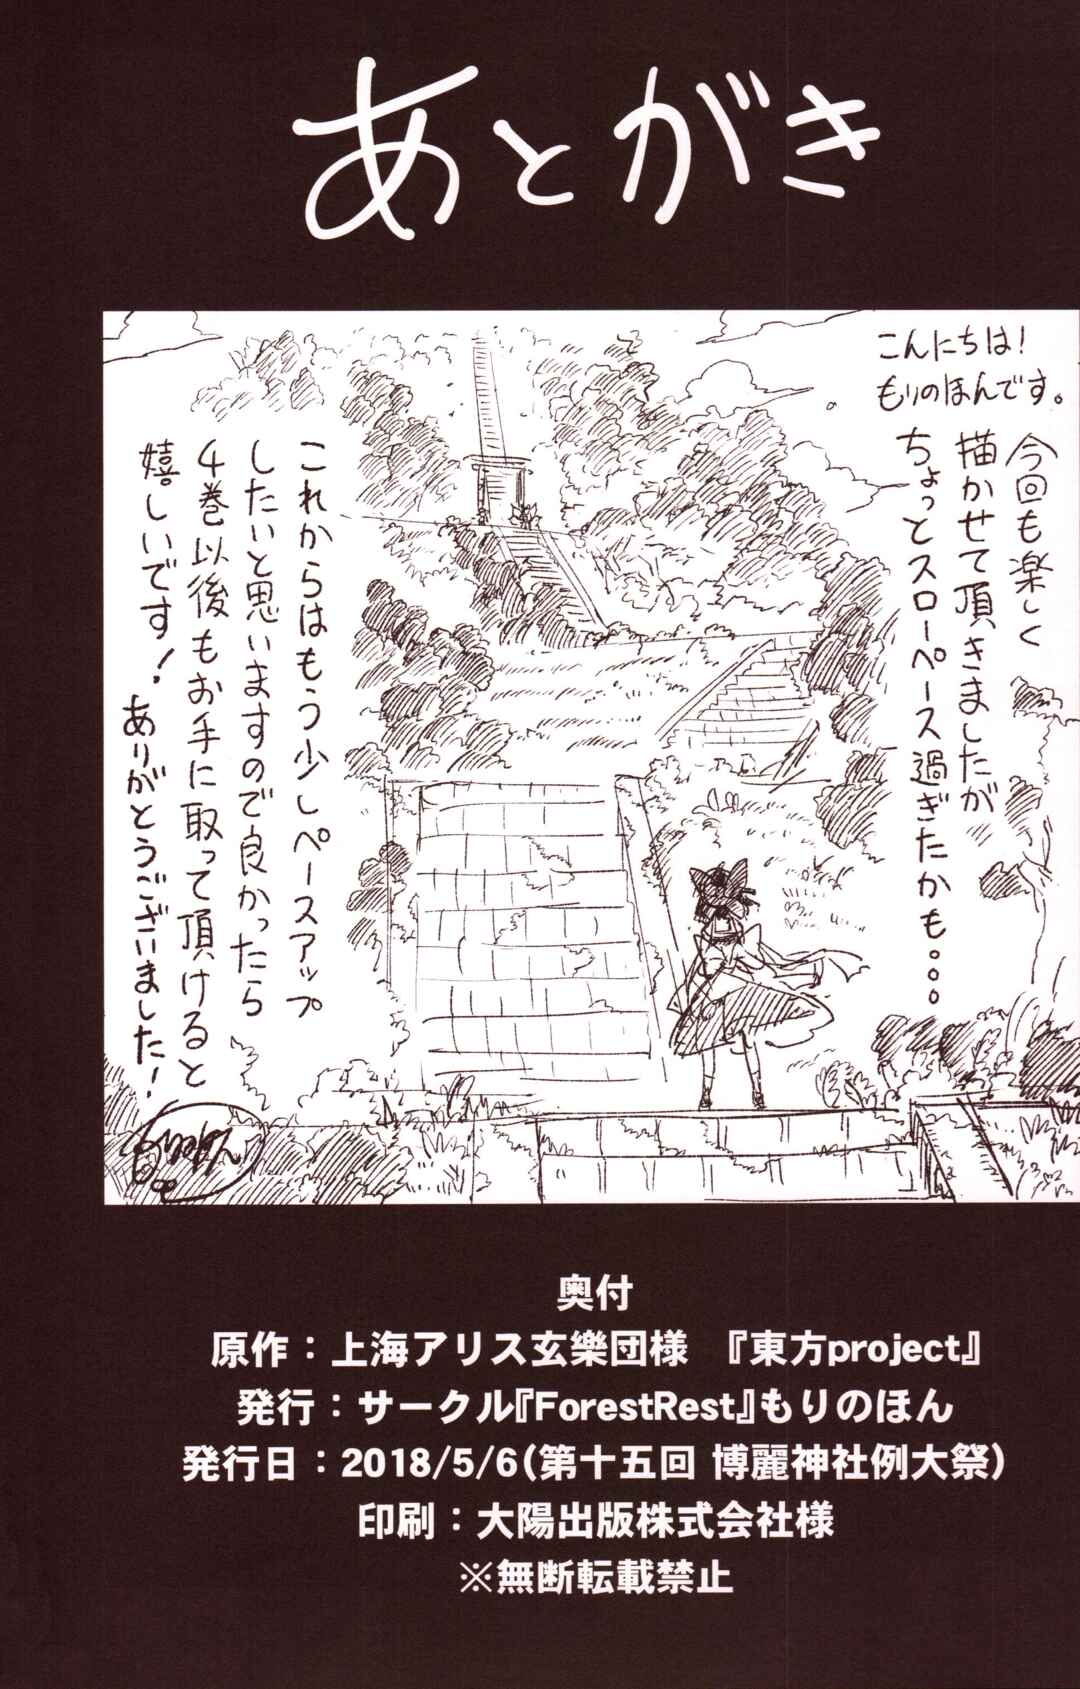 あとがき
こんにちは!
もりのほんです。
今回も楽しく
描かせて頂きましたが
ちょっとスローペース過ぎたかも。。。
これからはもう少しペースアップ
したいと思いますので良かったら
4巻以後もお手に取って頂けると
嬉しいです!
ありがとうございました!
もりのほん
奥付
原作:上海アリス玄樂団様 『東方project』
発行:サークル『ForestRest』もりのほん
発行日:2018/5/6(第十五回 博麗神社例大祭)
印刷:大陽出版株式会社様
※無断転載禁止